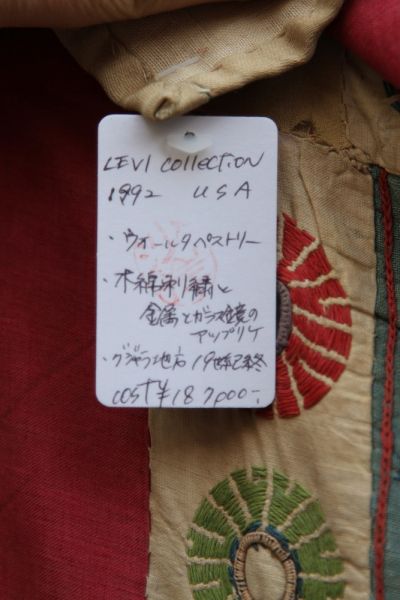 LEVI COLLECTION
1992 USA
・ウォールタペストリー
・木綿刺繍と
金属とガラス鏡の
アップリケ
・グジャラ地方 19世紀終
COST ¥187,000-